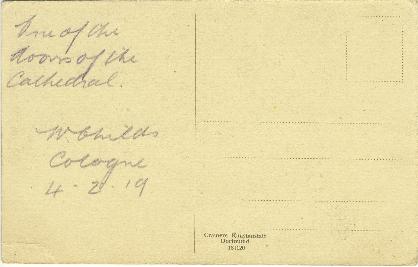 One of the
doors of the
Cathedral.
W. Childs
Cologne
4 . 2 . 19
Kunstanstalt
Dortmund